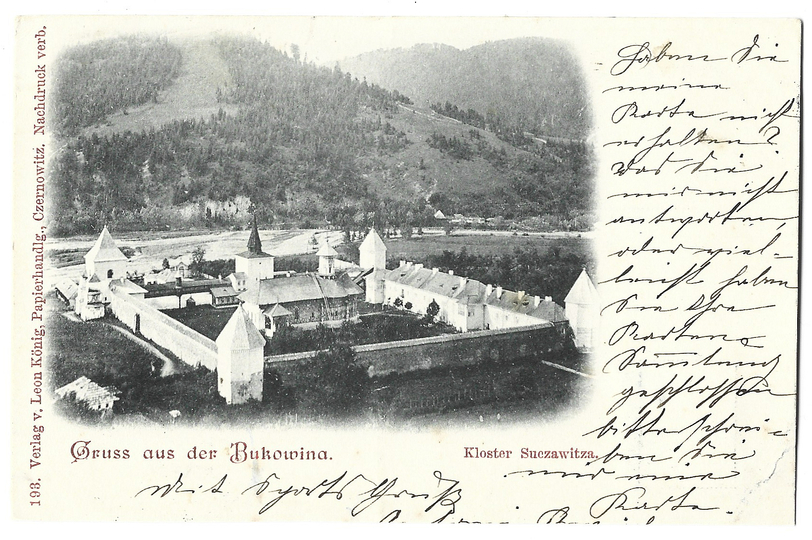 193. Verlag v. Leon König, Papierhandlg., Czernowitz. Nachdruck verb.
Gruss aus der Bukowina.
Kloster Suczawitza.
Haben Sie
meine
Karte nicht
erhalten?
Das Sie
mir nicht
antworten,
oder viel-
leicht haben
Sie Ihre
Karten
Samlung
geschlossen
bitte schrei-
ben Sie
und eine
Karte.
Mit Sports Gruß